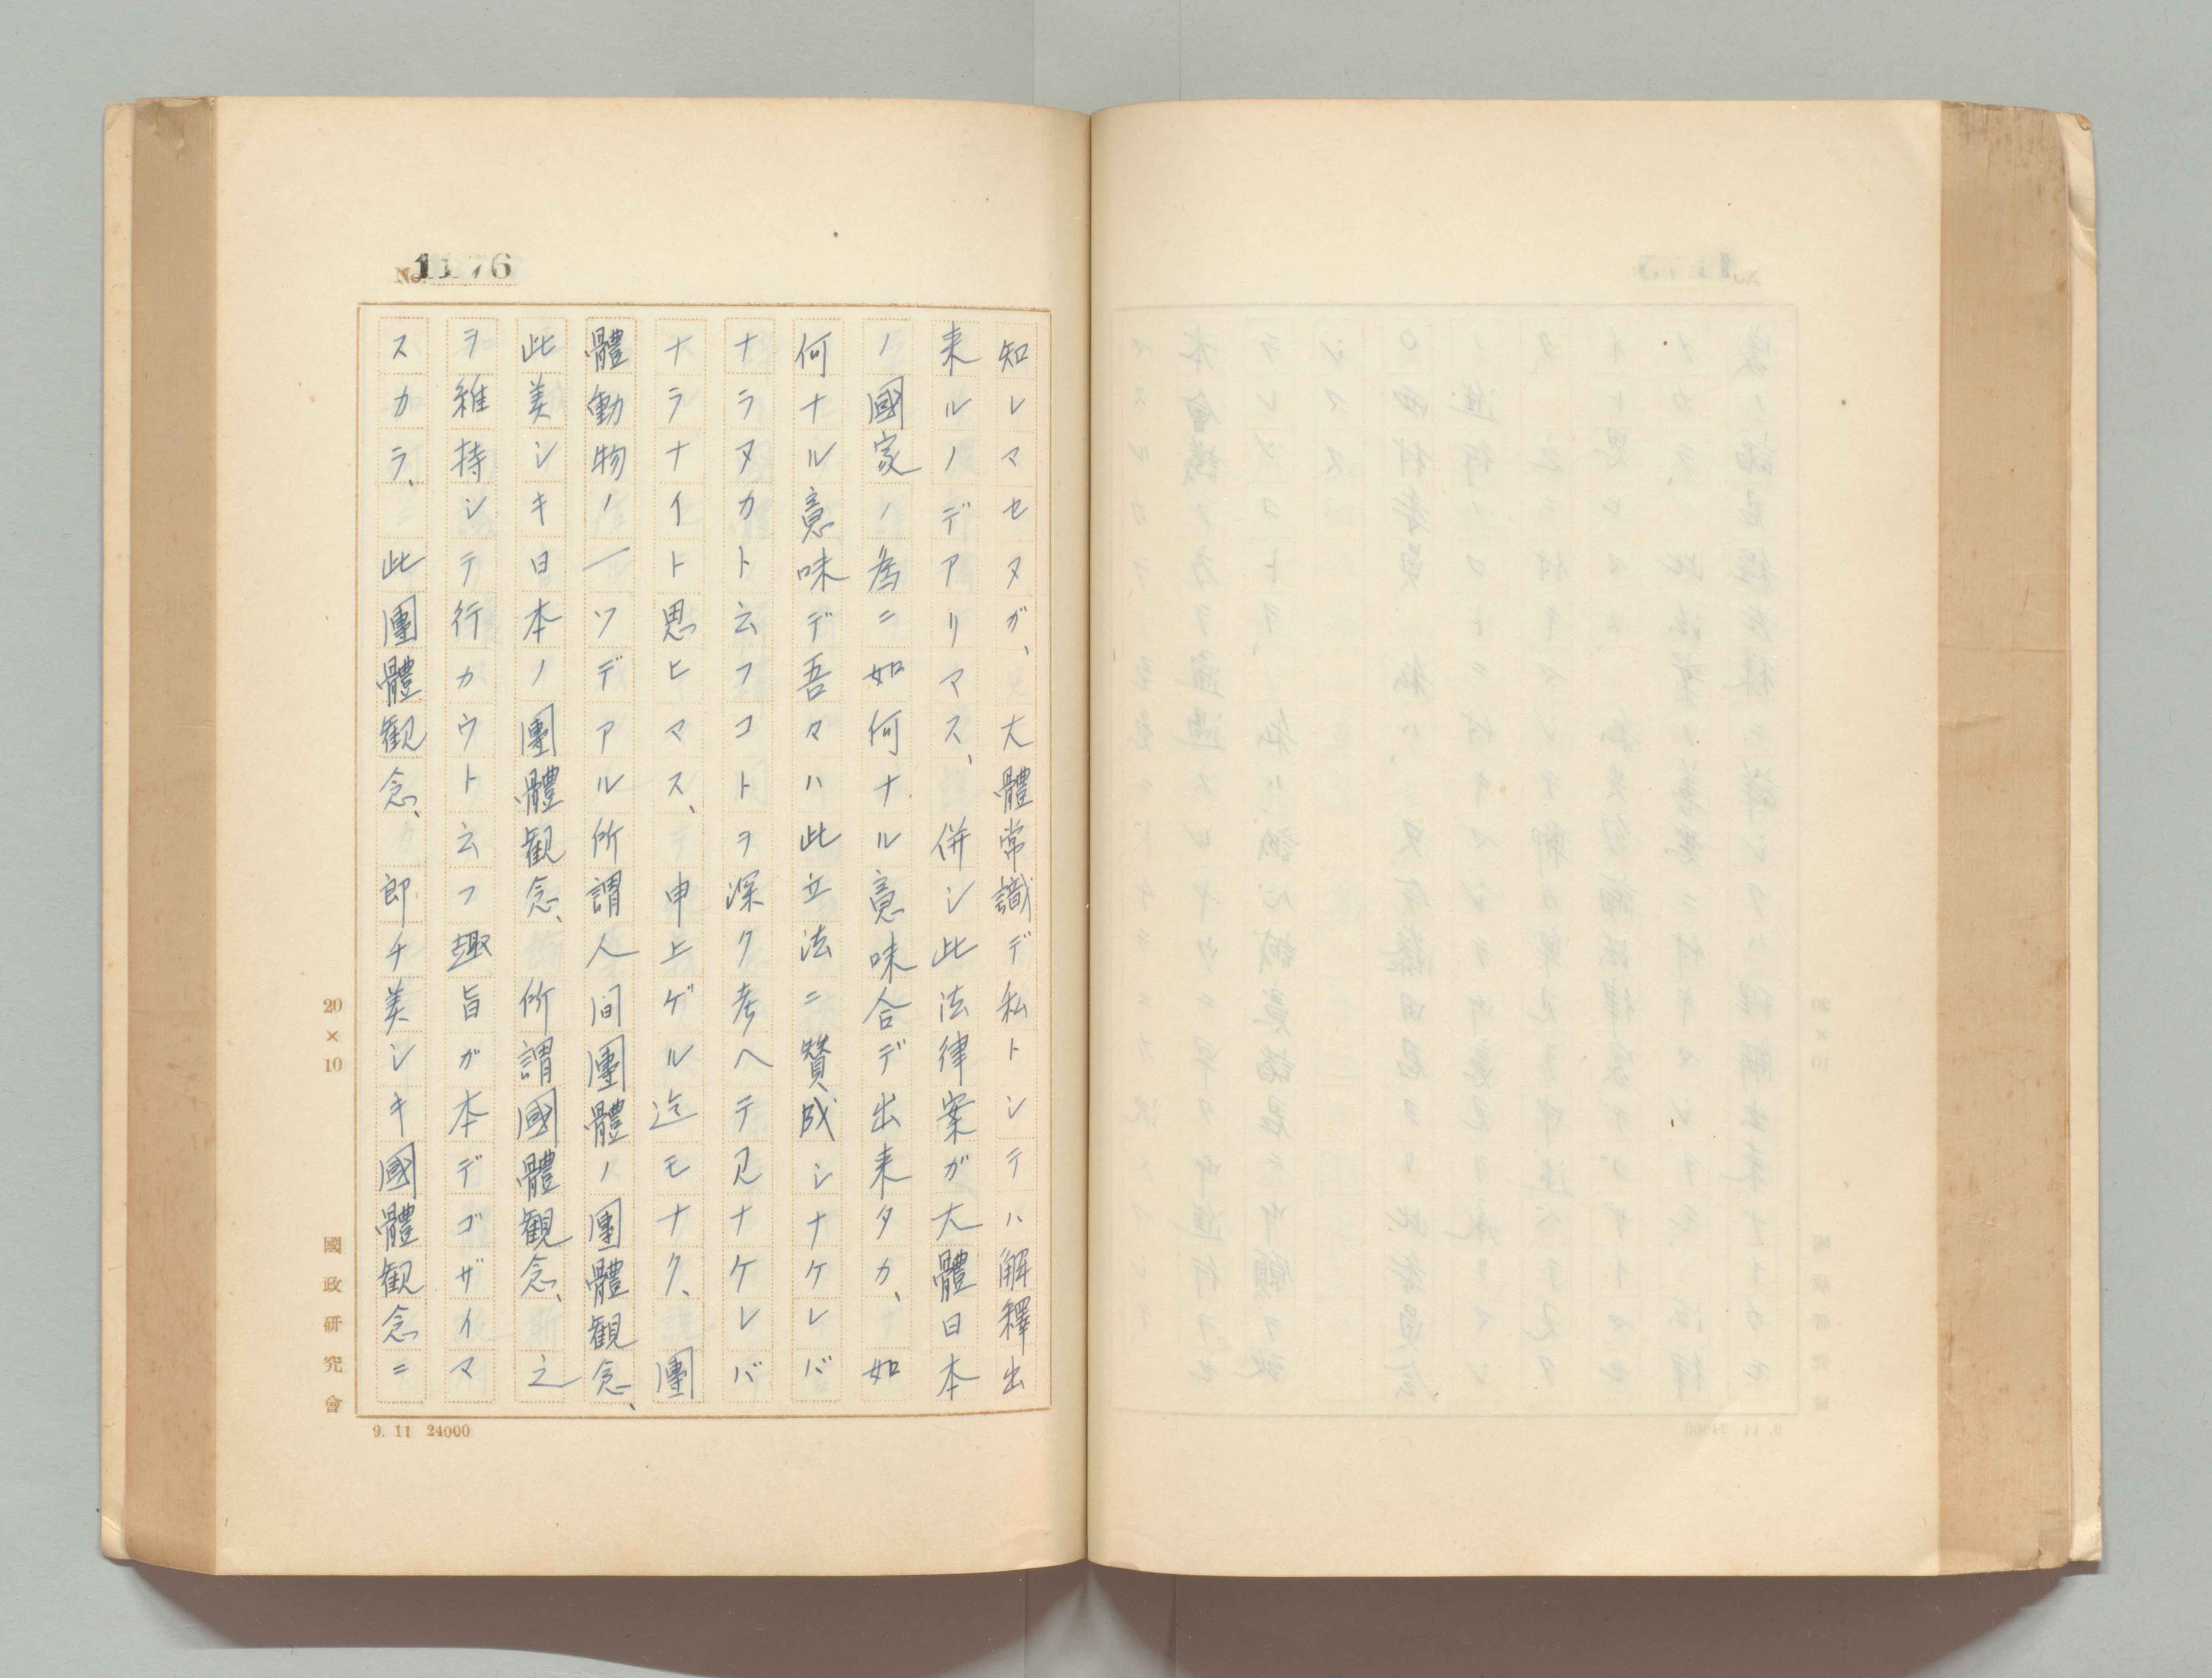 No. 1176
知レマセヌガ、大體常識デ私トシテハ解釋出
来ルノデアリマス、併シ此法律案ガ大體日本
ノ國家ノ為ニ如何ナル意味合デ出来タカ、如
何ナル意味デ吾々ハ此立法ニ賛成シナケレバ
ナラヌカト云フコトヲ深ク考ヘテ見ナケレバ
ナラナイト思ヒマス、申上ゲル迄モナク、團
體動物ノ一ツデアル所謂人間團體ノ團體観念、
此美シキ日本ノ團體観念、所謂國體観念、之
ヲ維持シテ行カウト云フ趣旨ガ本デゴザイマ
スカラ、此團體観念、即チ美シキ國體観念ニ
20×10
國政研究會
9. 11 24000